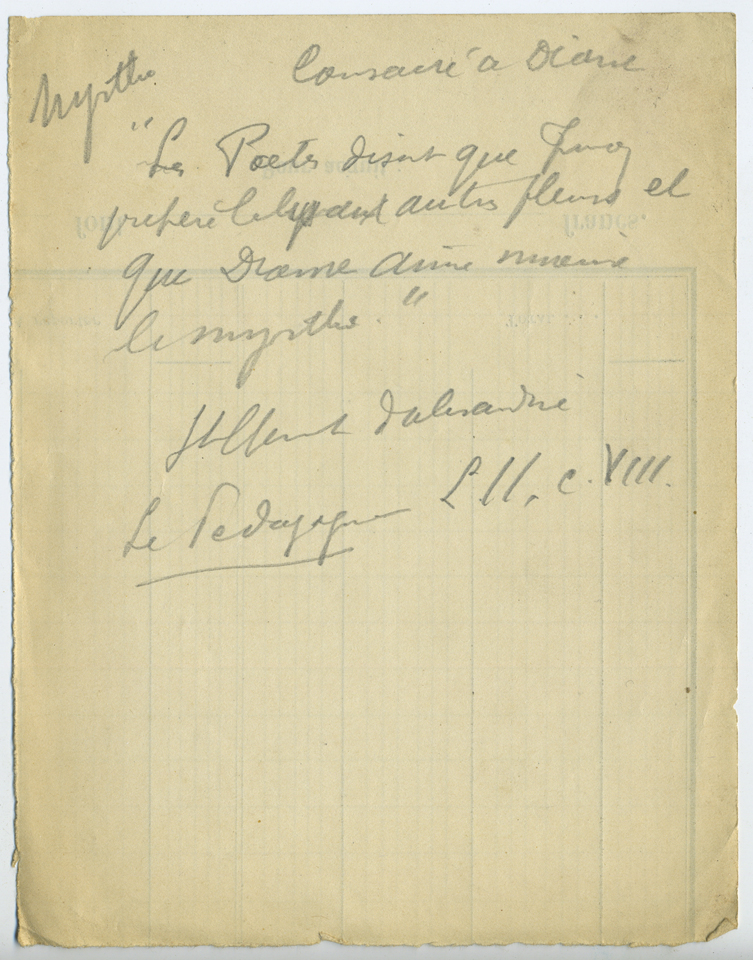 Myrthe
Consacré a Diane
"Les Poetes disent que Junon
prefere le lys aux autres fleurs et
que Diane aime mieux
le myrthe."
St Clement d'Alexandrie
Le Pedagogue L. II, c. VIII.